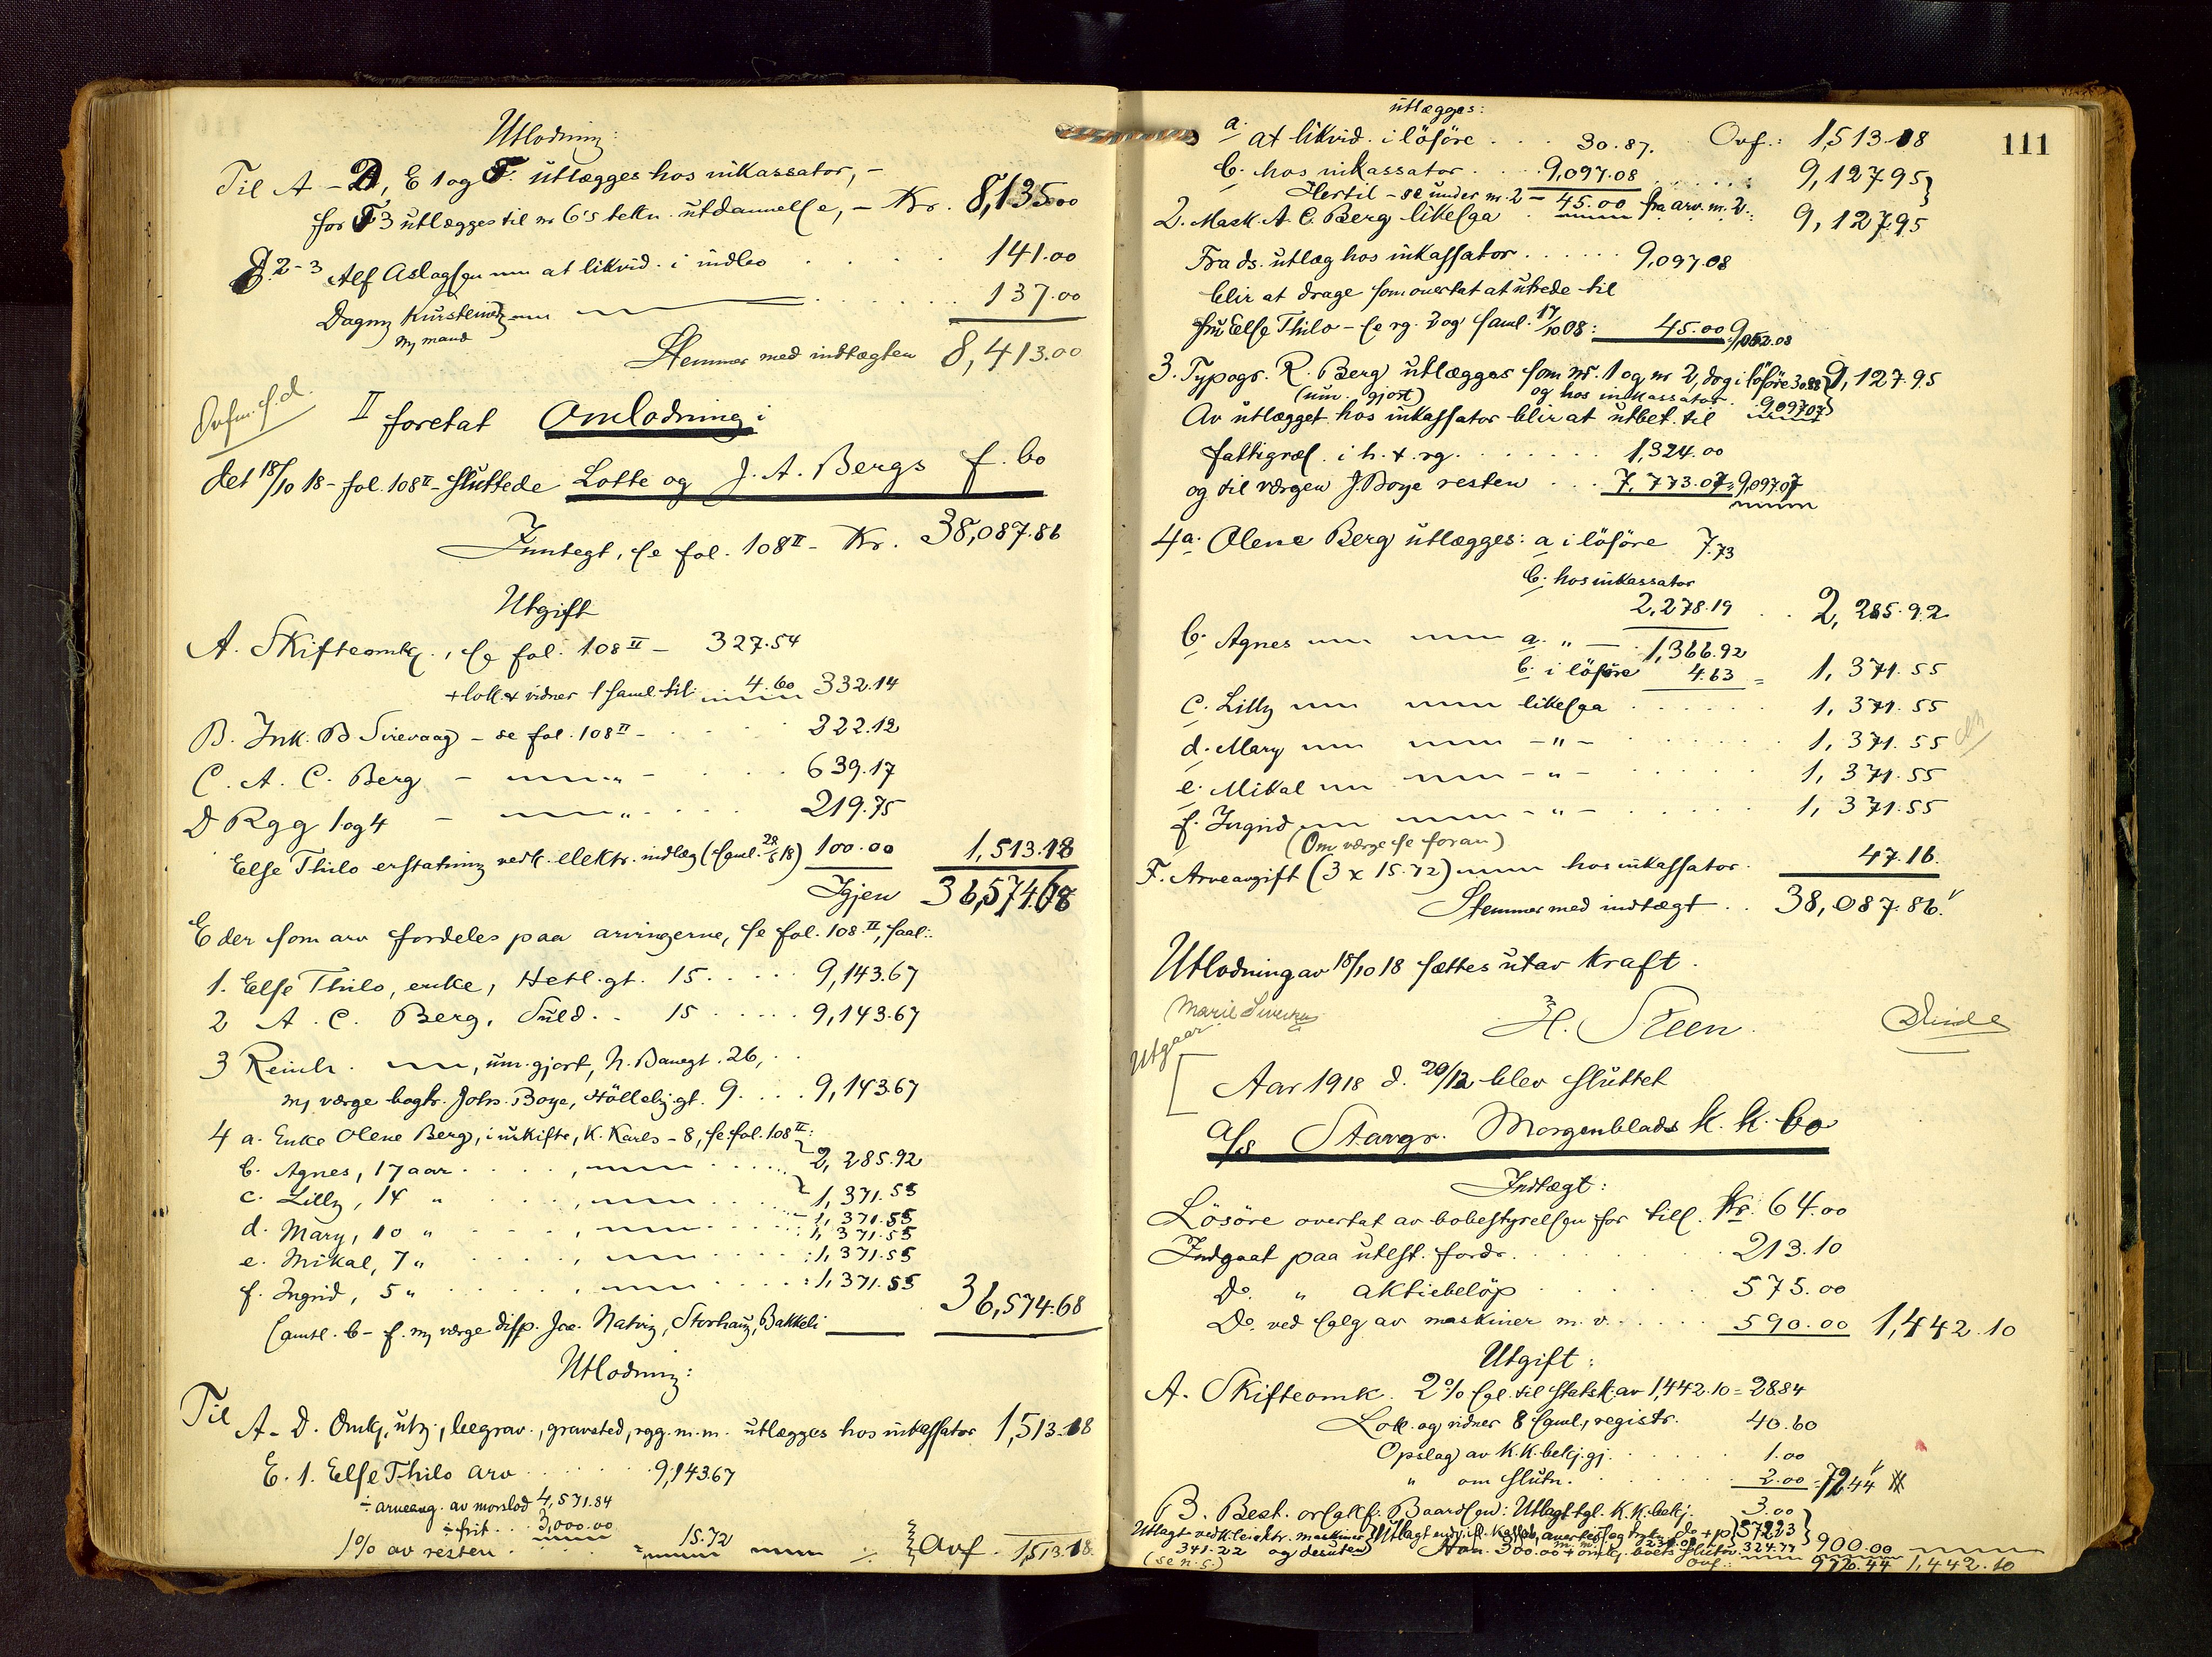 Utlodning:
Til A - D, E 1 og F. utlægges hos inkassator, -
for F 3 utlægges til nr 6's tekn. utdannelse, - Kr. 8,135.00
E 2-3 Alf Aslagsen at likvid. i indbo 141.00
Dagny 137.00
m, mand
Stemmer med indtægten 8,413.00
II foretat Omlodning i
det 18/10 18 - fol. 108 II - sluttede Lotte og J. A. Bergs f. bo
Inntegt, se fol. 108 II - Kr. 38,087.86
Utgift
A. Skifteomk., se fol. 108 II - 327.54
+ lok. & vidner 1 saml. til 4.60 332.14
B. Ink. B Sirevaag - se fol. 108 II - 222.12
C. A. C. Berg - " - 639.17
D Rgg 1 og 4 - " - 219.75
Else Thilo erstatning vedk. elektr. indlæg (saml. 18) 100.00 1,513.18
Igjen 36,574.68
E der som arv fordeles paa arvingerne, se fol. 108 II, saal:
1. Else Thilo, enke, Hetl. gt. 15 9,143.67
2 A. C. Berg, Suld. 15 9,143.67
3 Reinh. , um. gjort, N. Banegt. 26,
m, værge bogtr. Johs. Boye, Hölleby gt. 9 9,143.67
4 a. Enke Olene Berg, i uskifte, K. Karls - 8, se fol. 108 II: 2,285.92
b. Agnes, 17 aar , 1,371.55
c. Lilly, 14 " , 1,371.55
d. Mary, 10 " , 1,371.55
e. Mikal, 7 " , 1,371.55
f. Ingrid, 5 " , 1,371.55 36,574.68
samtl. b - f. m, værge disp. Jac. Natvig, Storhaug, Bakkeli
Utlodning:
Til A - D. Omk., utg., begrav., gravsted, rgg. m. m. utlægges hos inkassator 1,513.18
E. 1. Else Thilo arv 9,143.67
÷ arveavg. av morslod 4,571.84
÷ frit 3,000.00
1% av resten 15.72 Ovf. 1,513.18
111
utlægges:
a. at likvid. i lösöre 30.87. Ovf.: 1,513.18
b. hos inkassator 9,097.08 9,127.95
Hertil - se under nr. 2 - 45.00 fra arv. nr. 2.
2. Mask. A. C. Berg likesaa 9,127.95
Fra ds. utlæg hos inkassator 9,097.08
blir at drage som overtat at utrede til
fru Else Thilo - se rg. 2 og saml. 17/10 08: 45.00 9,052.08
3. Typogr. R. Berg utlægges som nr. 1 og nr 2, dog i lösöre 30.88 9,127.95
(um. gjort) og hos inkassator 9,097.07
Av utlægget hos inkassator blir at utbet. til
fattigvæs. i h. t. rg. 1,324.00
og til værgen J. Boye resten 7,773.07 = 9,097.07
4 a. Olene Berg utlægges: a i lösöre 7.73
b. hos inkassator
2,278.19 2,285.92
b. Agnes a. " - 1,366.92
b. i lösöre 4.63 = 1,371.55
c. Lilly likesaa 1,371.55
d. Mary - " - 1,371.55
e. Mikal - " - 1,371.55
f. Ingrid - " - 1,371.55
(Om værge se foran)
F. Arveavgift (3 x 15.72) hos inkassator 47.16.
Stemmer med indtægt 38,087.86.
Utlodning av 18/10 18 sættes utav kraft.
H. Steen
Utgaar
Aar 1918 d. 20/12 blev sluttet
A/S Stavgr. Morgenblads k. k. bo
Indtægt:
Lösöre overtat av bobestyrelsen for till. Kr. 64.00
Indgaat paa utest. fordr. 213.10
Do. " aktiebelöp 575.00
Do. ved salg av maskiner m. v. 590.00 1,442.10
Utgift:
A. Skifteomk. 2% sal. til statsk. av 1,442.10 = 28.84
Lok. og vidner 8 saml., registr. 40.60
Opslag av K.K. bekj.gj. 1.00
" om slutn. 2.00 = 72.44
B. Best. orsakf. Baardsen: Utlagt tgl. K.K. bekj. 3.00
Utlagt vedk. elektr. maskiner 900.00
341.22 og desuten 300.00 324.77
(se n. s.) Ovf.: 972.44 1,442.10